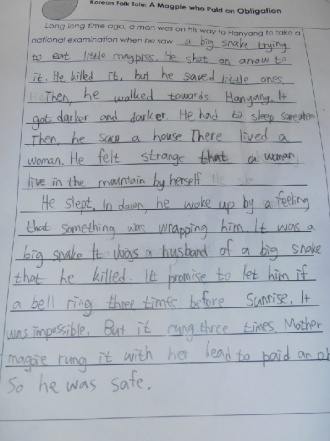 Korean Folk Tale: A Magpie who Paid an Obligation
Long long time ago, a man was on his way to Hanyang to take a
national examination when he saw a big snake trying
to eat little magpies. He shot an arrow to
it. He killed it, but he saved little ones
Then, he walked towards Hanyang. It
got darker and darker. He had to sleep
Then, he saw a house There lived a
woman. He felt strange that a woman
live in the mountain by herself
He slept, In dawn, he woke up by a feeling
that something was wrapping him It was a
big snake It was a husband of a big snake
that he killed. It promise to let him if
a bell ring three times before Sunrise, It
was impossible. But it rung three times. Mother
magpie rung it with her head to paid an ob
So he was safe.